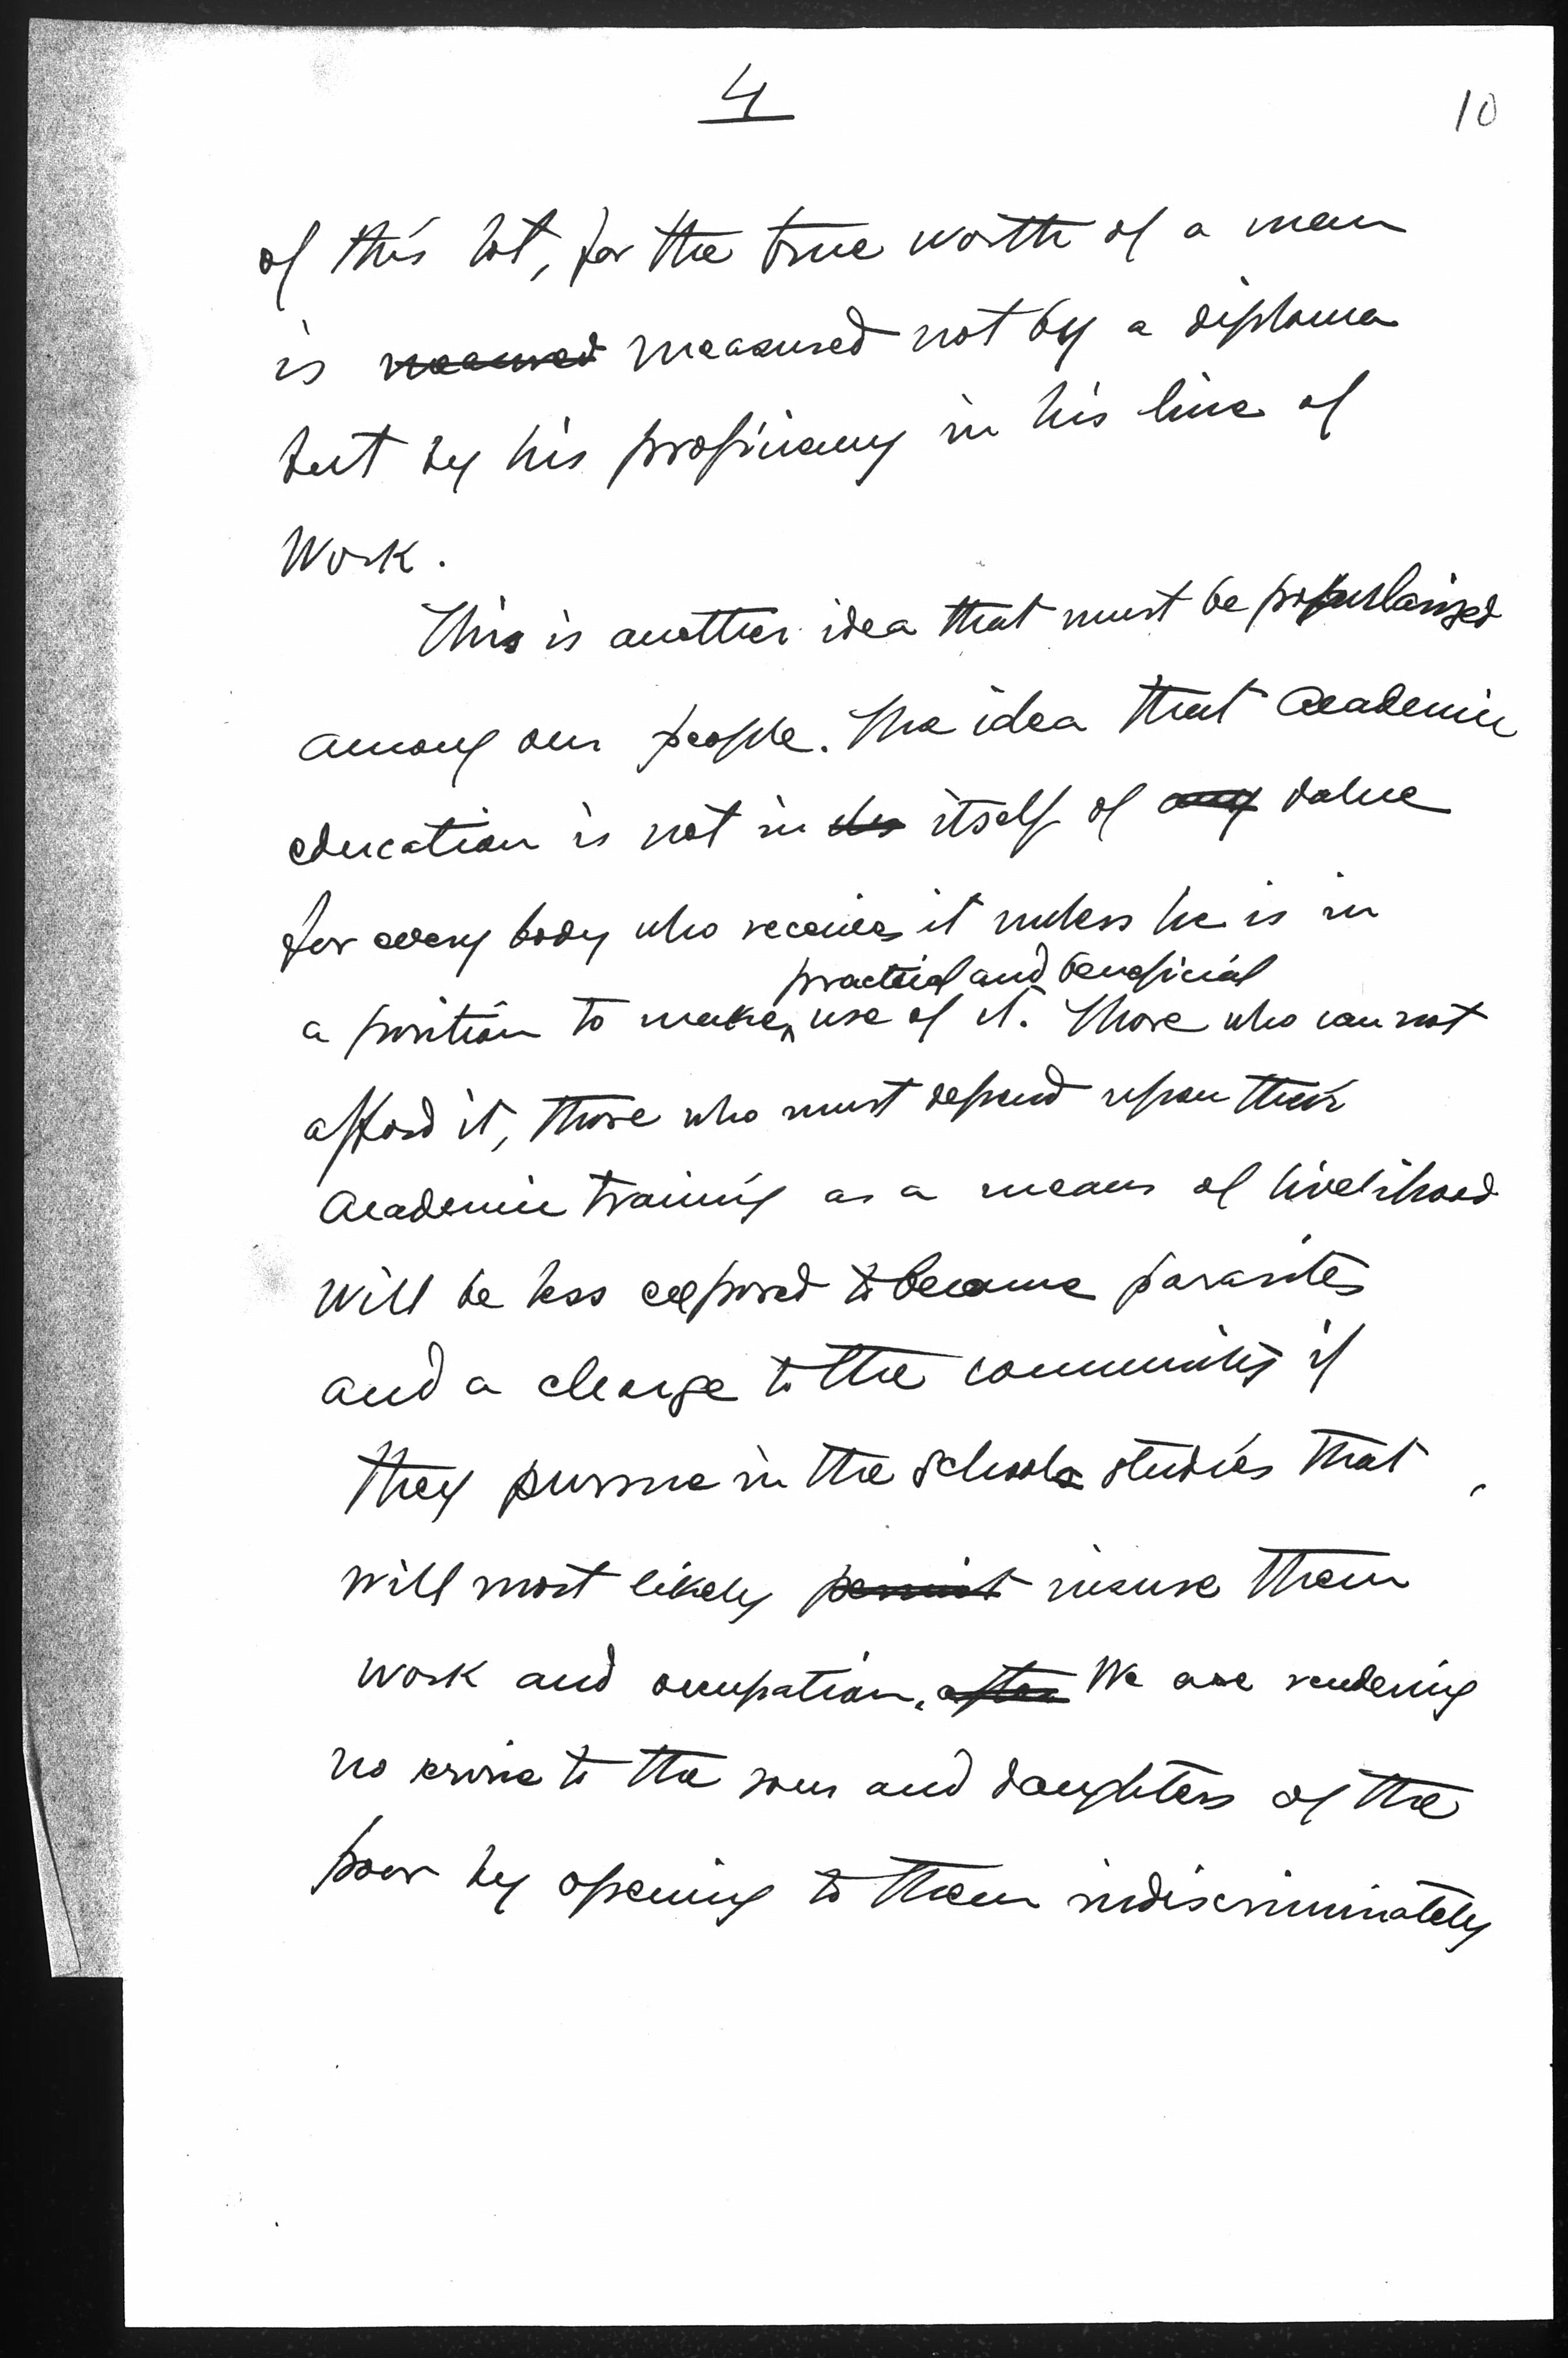 4
10
of this lot, for the true worth of a man
is measured not by a diploma
but by his proficiency in his line of
Work.
This is another idea that must be popularized
among our people. The idea that Academic
education is not in itself of any value
for every body who receives it unless he is in
practical and beneficial
a position to make use of it. Those who can not
afford it, those who must depend upon their
Academic training as a means of livelihood
will be less exposed to become parasites
and a charge to the community if
they pursue in the schools studies that
will most likely permit insure them
work and occupation. after We are rendering
no service to the sons and daughters of the
poor by opening to them indiscriminately